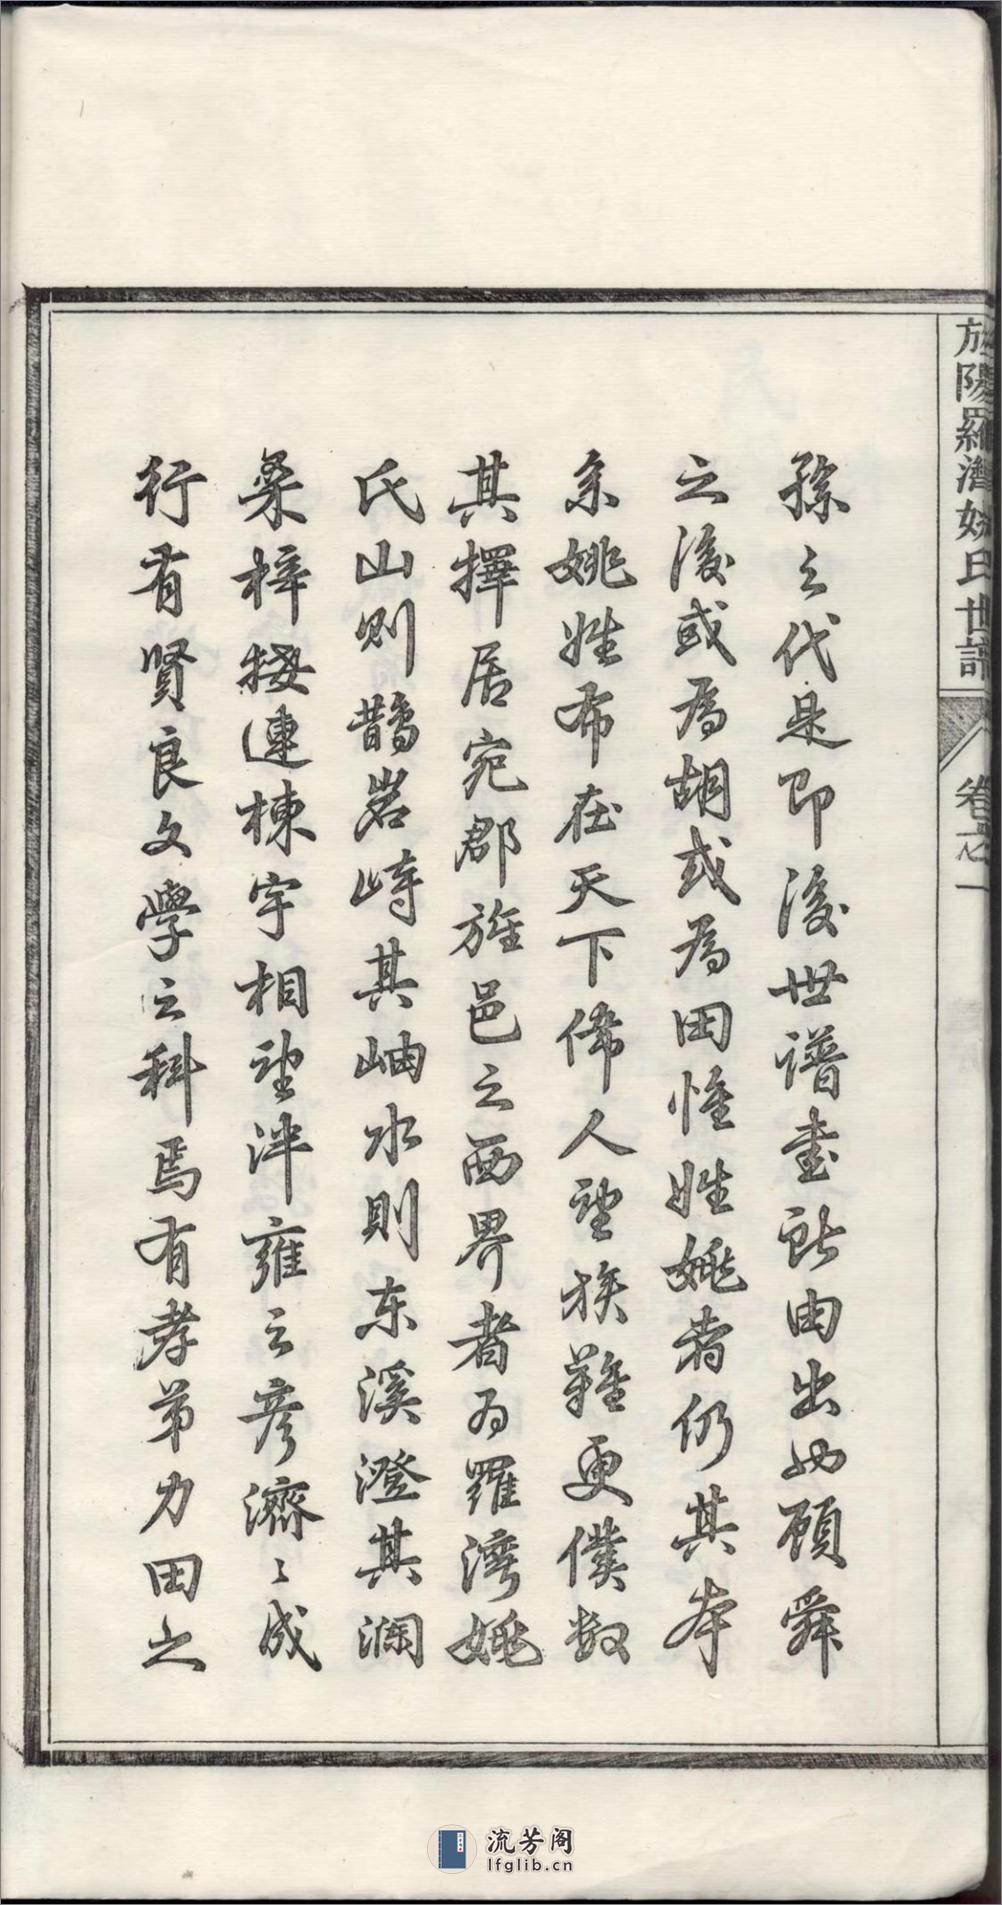 旌陽羅灣姚氏世譜
卷之一
孫之代是即後世譜書所由出也顧舜
之後或為胡或為田惟姓姚者仍其本
系姚姓布在天下偉人望族難更僕數
其擇居宛郡旌邑之西界者為羅灣姚
氏山則鵲岩峙其岫水則东溪澄其瀾
桑梓接連棟宇相望泮雍之彦濟〻成
行有賢良文學之科焉有孝弟力田之
流芳阁
lfglib.cn